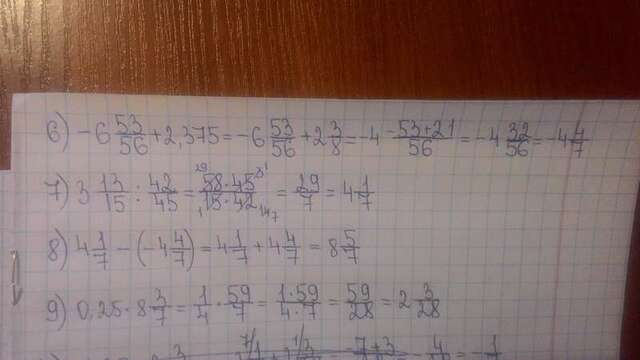 6) -6 53/56 + 2,375 = -6 53/56 + 2 3/8 = -4 -53+21/56 = -4 32/56 = -4 4/7
7) 3 13/15 : 42/45 = 58·45/15·42 = 29/7 = 4 1/7
8) 4 1/7 - (-4 4/7) = 4 1/7 + 4 4/7 = 8 5/7
9) 0.25·8 3/7 = 1/4 · 59/7 = 1·59/4·7 = 59/28 = 2 3/28